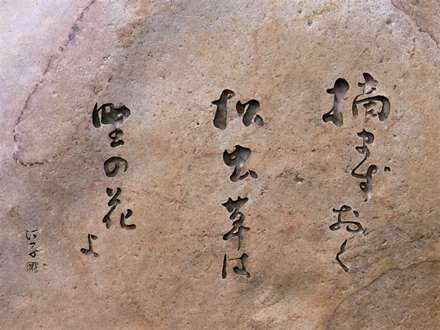 摘まずおく
松虫草は
野の花よ